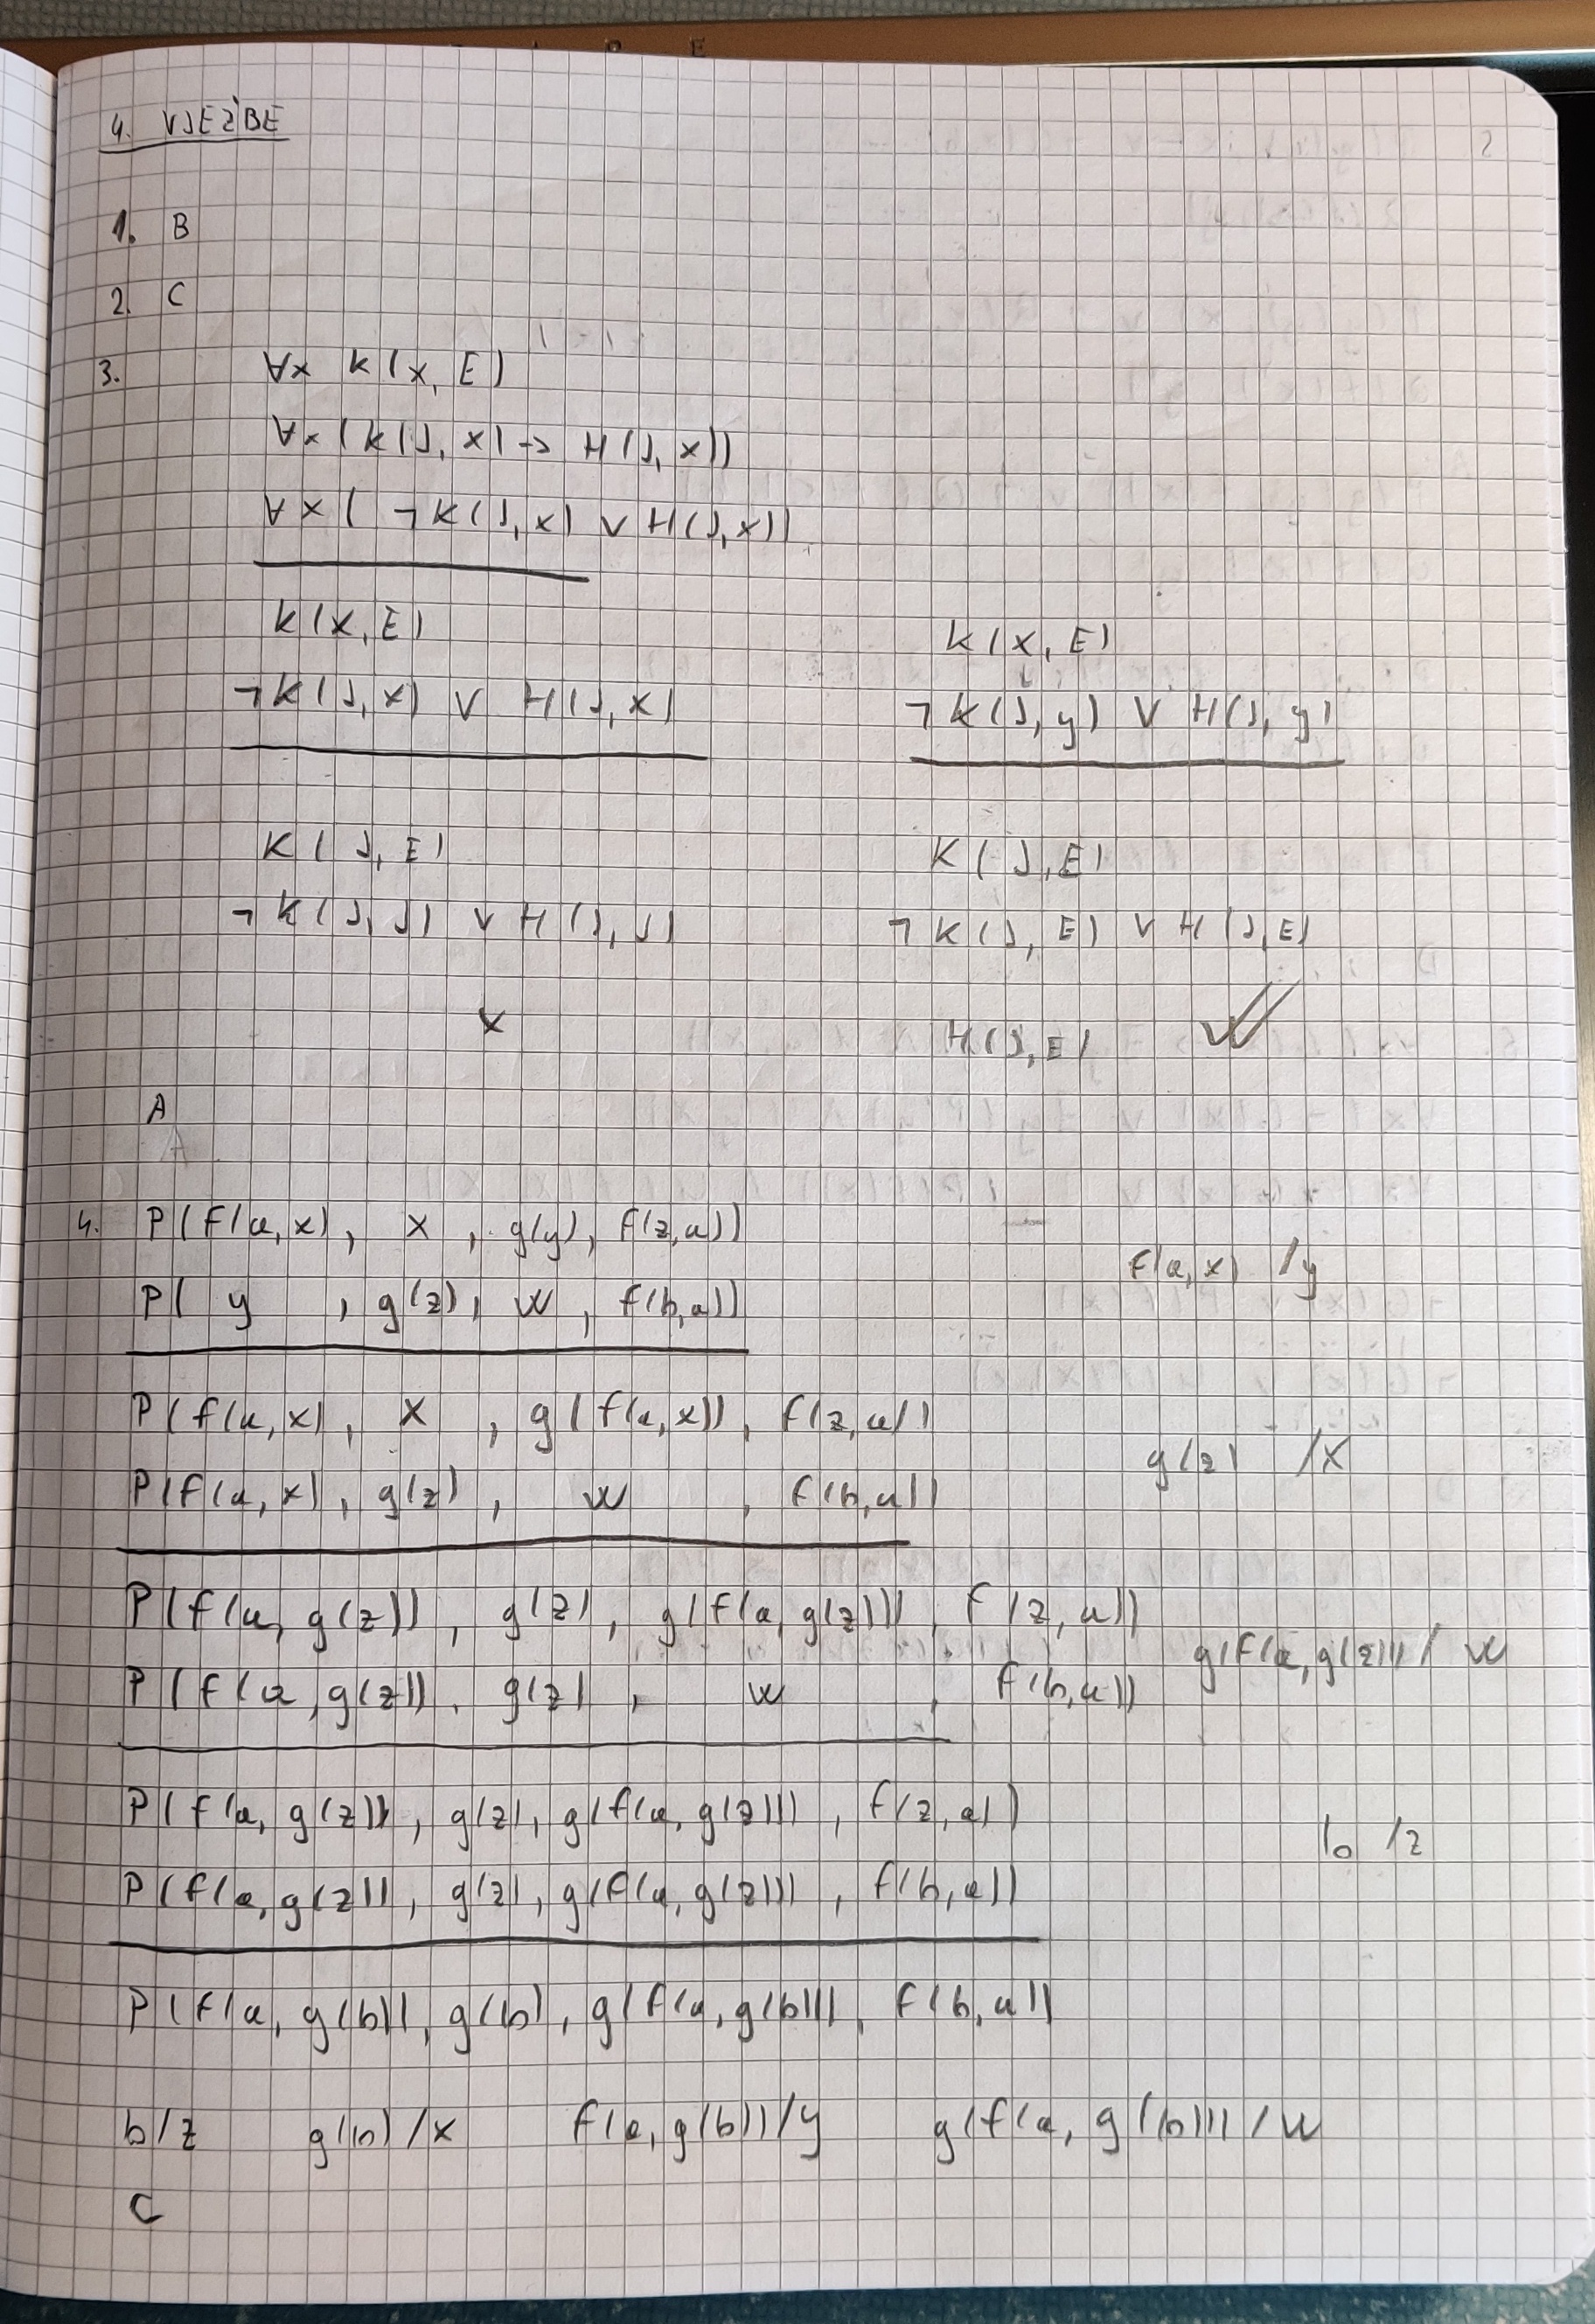 4. VJEŽBE
1. B
2. C
3. ∀x K(x, E)
∀x (K(J, x) → H(J, x))
∀x ( ¬K(J, x) ∨ H(J, x))
K(x, E)
¬K(J, x) ∨ H(J, x)
K(J, E)
¬K(J, J) ∨ H(J, J)
x
K(x, E)
¬K(J, y) ∨ H(J, y)
K(J, E)
¬K(J, E) ∨ H(J, E)
H(J, E)
A
4. P(f(a, x), x, g(y), f(z, a))
P( y , g(z), w, f(b, a))
f(a, x) /y
P(f(a, x), x, g(f(a, x)), f(z, a))
P(f(a, x), g(z), w, f(b, a))
g(z) /x
P(f(a, g(z)), g(z), g(f(a, g(z))), f(z, a))
P(f(a, g(z)), g(z), w, f(b, a))
g(f(a, g(z))) / w
P(f(a, g(z)), g(z), g(f(a, g(z))), f(z, a))
P(f(a, g(z)), g(z), g(f(a, g(z))), f(b, a))
b /z
P(f(a, g(b)), g(b), g(f(a, g(b))), f(b, a))
b/z g(b)/x f(a, g(b))/y g(f(a, g(b)))/w
C